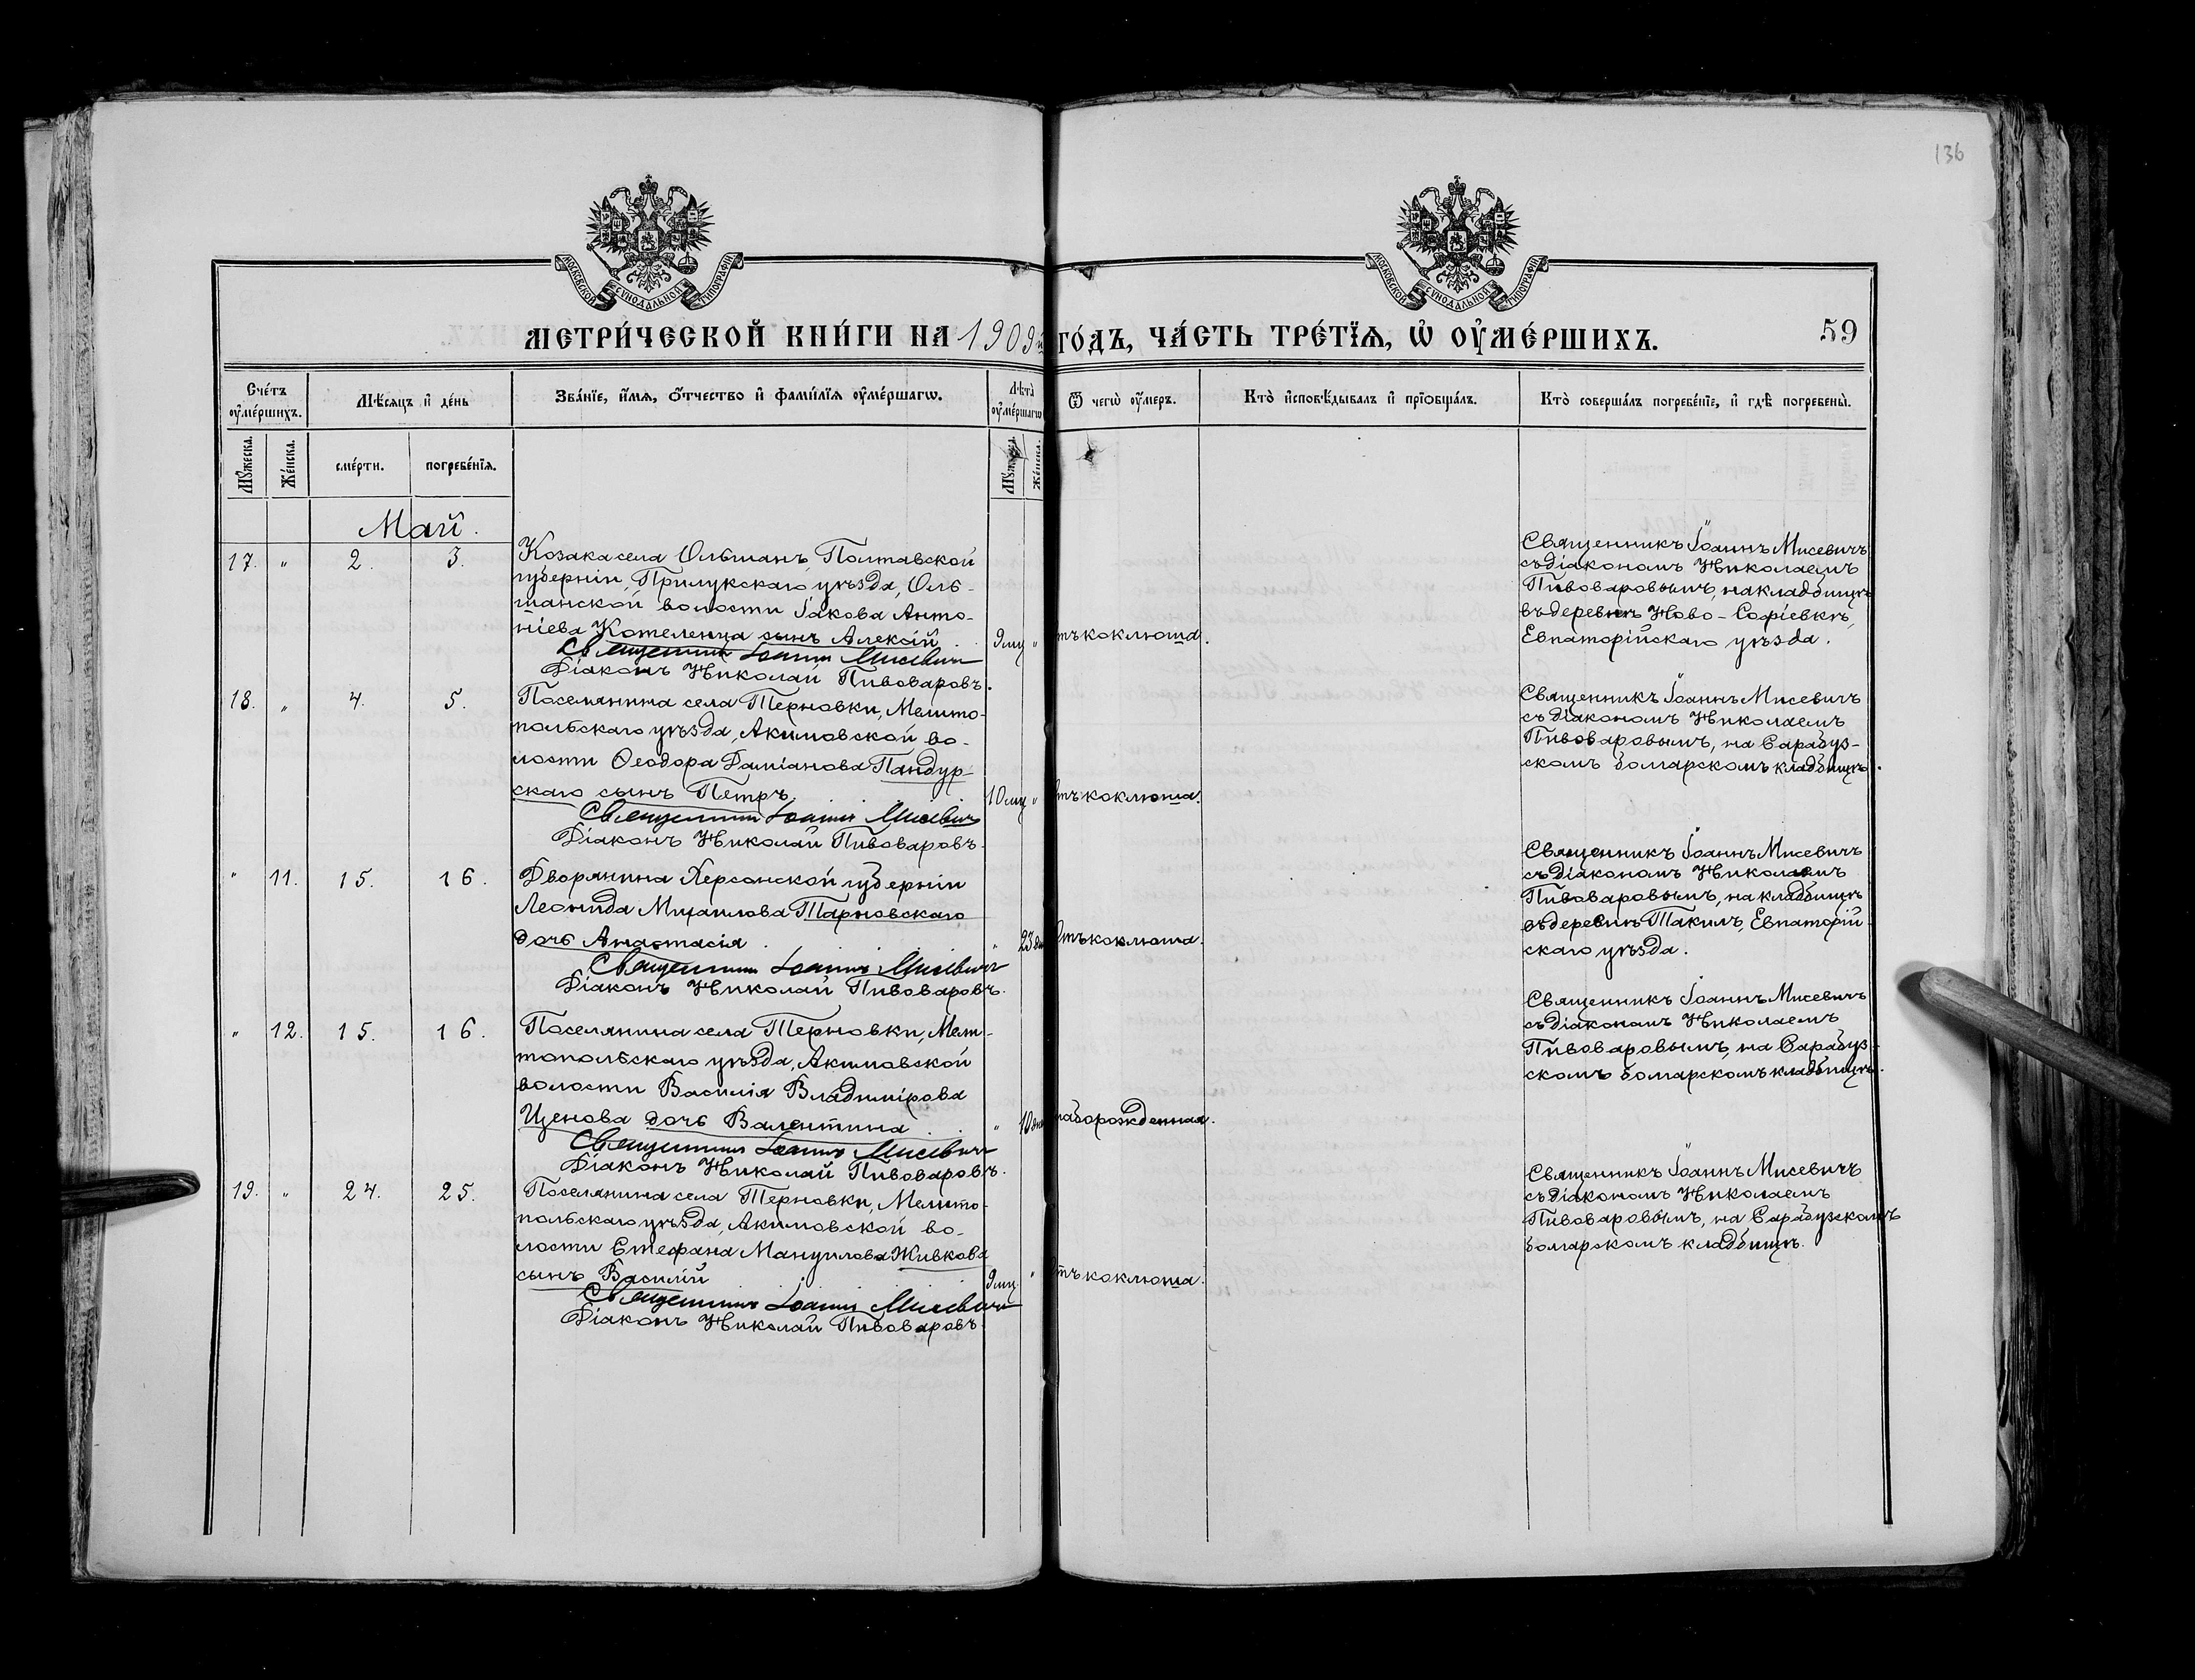 136
МОСКОВСКОЙ СѴНОДАЛЬНОЙ ТИПОГРАФІИ
МОСКОВСКОЙ СѴНОДАЛЬНОЙ ТИПОГРАФІИ
МЕТРИ́ЧЕСКОЙ КНИ́ГИ НА 1909й ГО́ДЪ, ЧА́СТЬ ТРЕ́ТЇѦ, Ѡ҆ ОУ҆МЕ́РШИХЪ.
59
Сче́тъ оу҆ме́ршихъ.
Мѣ́сѧцъ и҆ де́нь
Зва́нїе, и҆́мѧ, ѻ҆́тчество и҆ фами́лїѧ оу҆ме́ршагѡ.
Лѣ́та оу҆ме́ршагѡ
Ѿ чегѡ̀ оу҆́меръ.
Кто̀ и҆сповѣ́дывалъ и҆ прїѡбща́лъ.
Кто̀ соверша́лъ погребе́нїе, и҆ гдѣ̀ погребены̀.
Мꙋ́жеска.
Же́нска.
сме́рти.
погребе́нїѧ.
Мꙋ́жеска.
Же́нска.
Май.
17. " 2. 3.
Козака села Ольшанъ, Полтавской
губерніи, Прилукскаго уѣзда, Оль-
шанской волости Іакова Анто-
ніева Котеленца сынъ Алексій
9 мц " отъ коклюша.
Священникъ Іоаннъ Мисевичъ
Діаконъ Николай Пивоваровъ.
Священникъ Іоаннъ Мисевичъ
съ діакономъ Николаемъ
Пивоваровымъ, на кладбищѣ
въ деревнѣ Ново-Софіевкѣ,
Евпаторійскаго уѣзда.
18. " 4. 5.
Поселянина села Терновки, Мелито-
польскаго уѣзда, Акимовской во-
лости Ѳеодора Даміанова Пандур-
скаго сынъ Петръ
10 мц " отъ коклюша.
Священникъ Іоаннъ Мисевичъ
Діаконъ Николай Пивоваровъ.
Священникъ Іоаннъ Мисевичъ
съ діакономъ Николаемъ
Пивоваровымъ, на Сарабуз-
скомъ болгарскомъ кладбищѣ.
" 11. 15. 16.
Дворянина Херсонской губерніи
Леонида Михаилова Тарновскаго
дочь Анастасія
" 23 дн отъ коклюша.
Священникъ Іоаннъ Мисевичъ
Діаконъ Николай Пивоваровъ.
Священникъ Іоаннъ Мисевичъ
съ діакономъ Николаемъ
Пивоваровымъ, на кладбищѣ
въ деревнѣ Такилъ, Евпаторій-
скаго уѣзда.
" 12. 15. 16.
Поселянина села Терновки, Мели-
топольскаго уѣзда, Акимовской
волости Василія Владимірова
Ценова дочь Валентина
" 10 дн слаборожденная.
Священникъ Іоаннъ Мисевичъ
Діаконъ Николай Пивоваровъ.
Священникъ Іоаннъ Мисевичъ
съ діакономъ Николаемъ
Пивоваровымъ, на Сарабуз-
скомъ болгарскомъ кладбищѣ.
19. " 24. 25.
Поселянина села Терновки, Мелито-
польскаго уѣзда, Акимовской во-
лости Стефана Мануилова Живкова
сынъ Василій
9 мц " отъ коклюша.
Священникъ Іоаннъ Мисевичъ
Діаконъ Николай Пивоваровъ.
Священникъ Іоаннъ Мисевичъ
съ діакономъ Николаемъ
Пивоваровымъ, на Сарабузскомъ
болгарскомъ кладбищѣ.